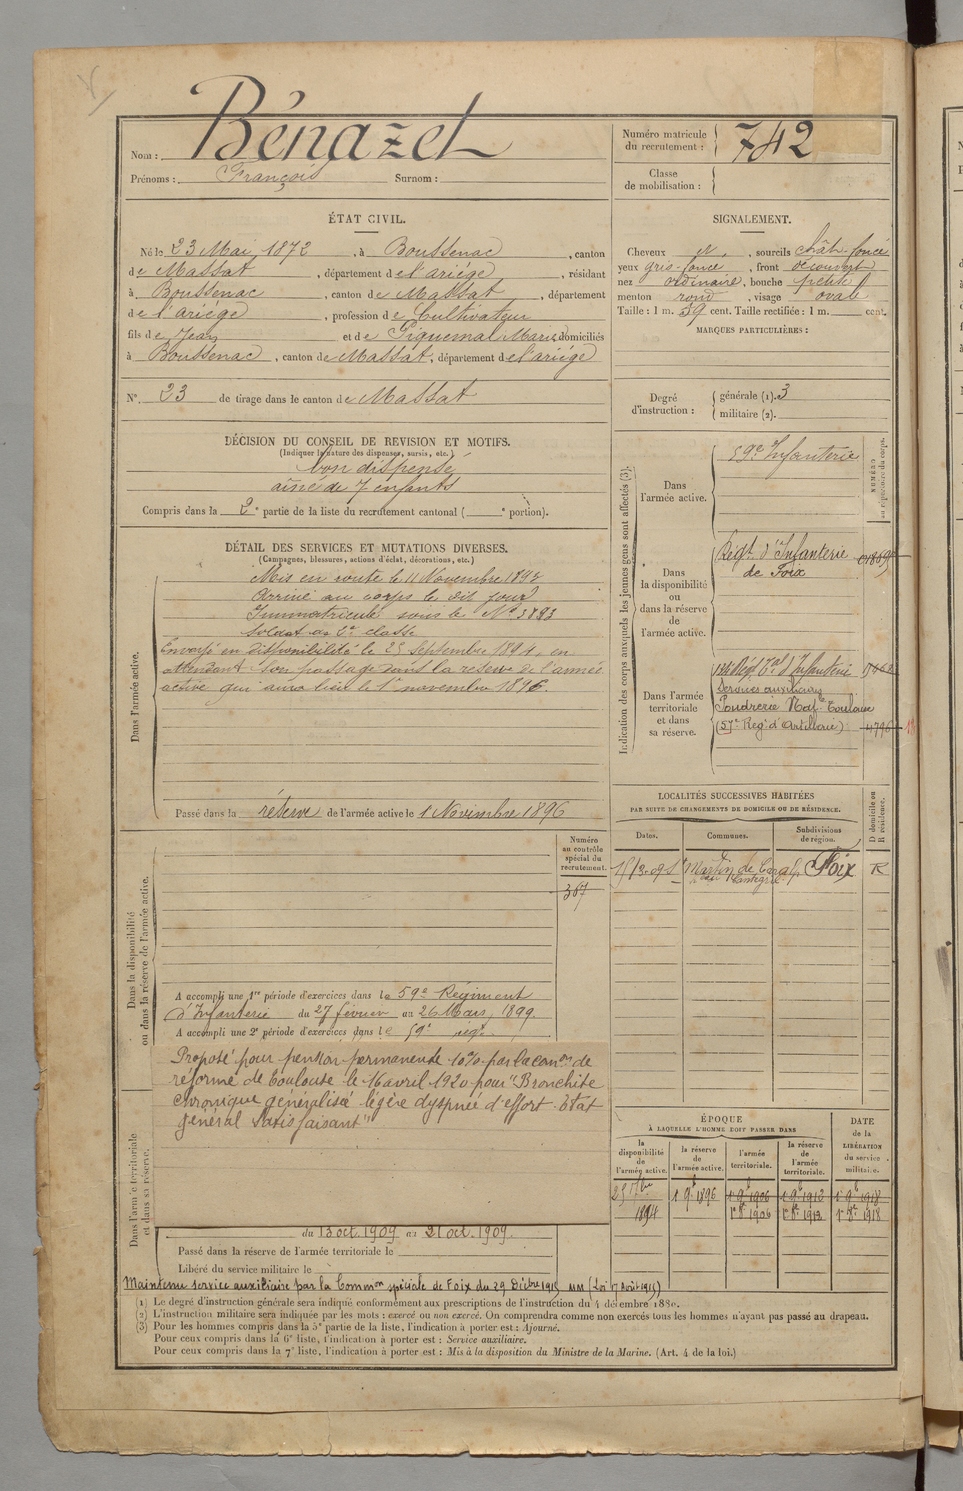 Nom : Bénazet
Prénoms : François Surnom :
Numéro matricule du recrutement : 742
Classe de mobilisation :
ÉTAT CIVIL.
Né le 23 Mai 1872, à Boussenac, canton
de Massat, département de l'ariège, résidant
à Boussenac, canton de Massat, département
de l'ariège, profession de Cultivateur
fils de Jean et de Piquemal Marie, domiciliés
à Boussenac, canton de Massat, département de l'ariège
N° 23 de tirage dans le canton de Massat
SIGNALEMENT.
Cheveux N, sourcils chât. foncé
yeux gris-foncé, front découvert
nez ordinaire, bouche petite
menton rond, visage ovale
Taille : 1 m. 59 cent. Taille rectifiée : 1 m. cent.
MARQUES PARTICULIÈRES :
Degré d'instruction : générale (1). 3
militaire (2).
DÉCISION DU CONSEIL DE REVISION ET MOTIFS.
(Indiquer la nature des dispenses, sursis, etc.)
bon dispensé
aîné de 7 enfants
Compris dans la 2e partie de la liste du recrutement cantonal ( e portion).
DÉTAIL DES SERVICES ET MUTATIONS DIVERSES.
(Campagnes, blessures, actions d'éclat, décorations, etc.)
Dans l'armée active.
Mis en route le 11 Novembre 1893
Arrivé au corps le dit jour
Immatriculé sous le No 3893
Soldat de 2e classe
Envoyé en disponibilité le 25 septembre 1894, en
attendant son passage dans la réserve de l'armée
active qui aura lieu le 1er novembre 1896.
Passé dans la réserve de l'armée active le 1 Novembre 1896
Indication des corps auxquels les jeunes gens sont affectés (3).
NUMÉRO au répertoire du corps.
Dans l'armée active.
59e Infanterie
Dans la disponibilité ou dans la réserve de l'armée active.
Régt. d'Infanterie
de Foix
Dans l'armée territoriale et dans sa réserve.
Régt Tal d'Infanterie
Services auxiliaires
Poudrerie Nat. Toulouse
(57e Reg. d'Artillerie) 4796
LOCALITÉS SUCCESSIVES HABITÉES
PAR SUITE DE CHANGEMENTS DE DOMICILE OU DE RÉSIDENCE.
D domicile ou R résidence.
Dates. Communes. Subdivisions de région.
St Martin de Caralp Foix R
Dans la disponibilité ou dans la réserve de l'armée active.
Numéro au contrôle spécial du recrutement.
367
A accompli une 1re période d'exercices dans le 59e Régiment
d'Infanterie du 27 février au 26 Mars 1899.
A accompli une 2e période d'exercices dans le 59e reg.
Proposé pour pension permanente 10% par la comon de
réforme de Toulouse le 16 avril 1920 pour "Bronchite
chronique généralisée légère dyspnée d'effort. Etat
général satisfaisant"
Dans l'armée territoriale et dans sa réserve.
du 13 oct. 1909 au 21 oct. 1909.
Passé dans la réserve de l'armée territoriale le
Libéré du service militaire le
Maintenu service auxiliaire par la Common spéciale de Foix du 29 Décbre 1915 (Loi 17 Août 1915)
ÉPOQUE
À LAQUELLE L'HOMME DOIT PASSER DANS
DATE de la LIBÉRATION du service militaire.
la disponibilité de l'armée active. la réserve de l'armée active. l'armée territoriale. la réserve de l'armée territoriale.
25 7bre 1 9b 1896 1 9b 1906 1 9b 1912 1 9b 1918
1894 1906 1912 1918
(1) Le degré d'instruction générale sera indiqué conformément aux prescriptions de l'instruction du 4 décembre 1889.
(2) L'instruction militaire sera indiquée par les mots : exercé ou non exercé. On comprendra comme non exercés tous les hommes n'ayant pas passé au drapeau.
(3) Pour les hommes compris dans la 5e partie de la liste, l'indication à porter est : Ajourné.
Pour ceux compris dans la 6e liste, l'indication à porter est : Service auxiliaire.
Pour ceux compris dans la 7e liste, l'indication à porter est : Mis à la disposition du Ministre de la Marine. (Art. 4 de la loi.)